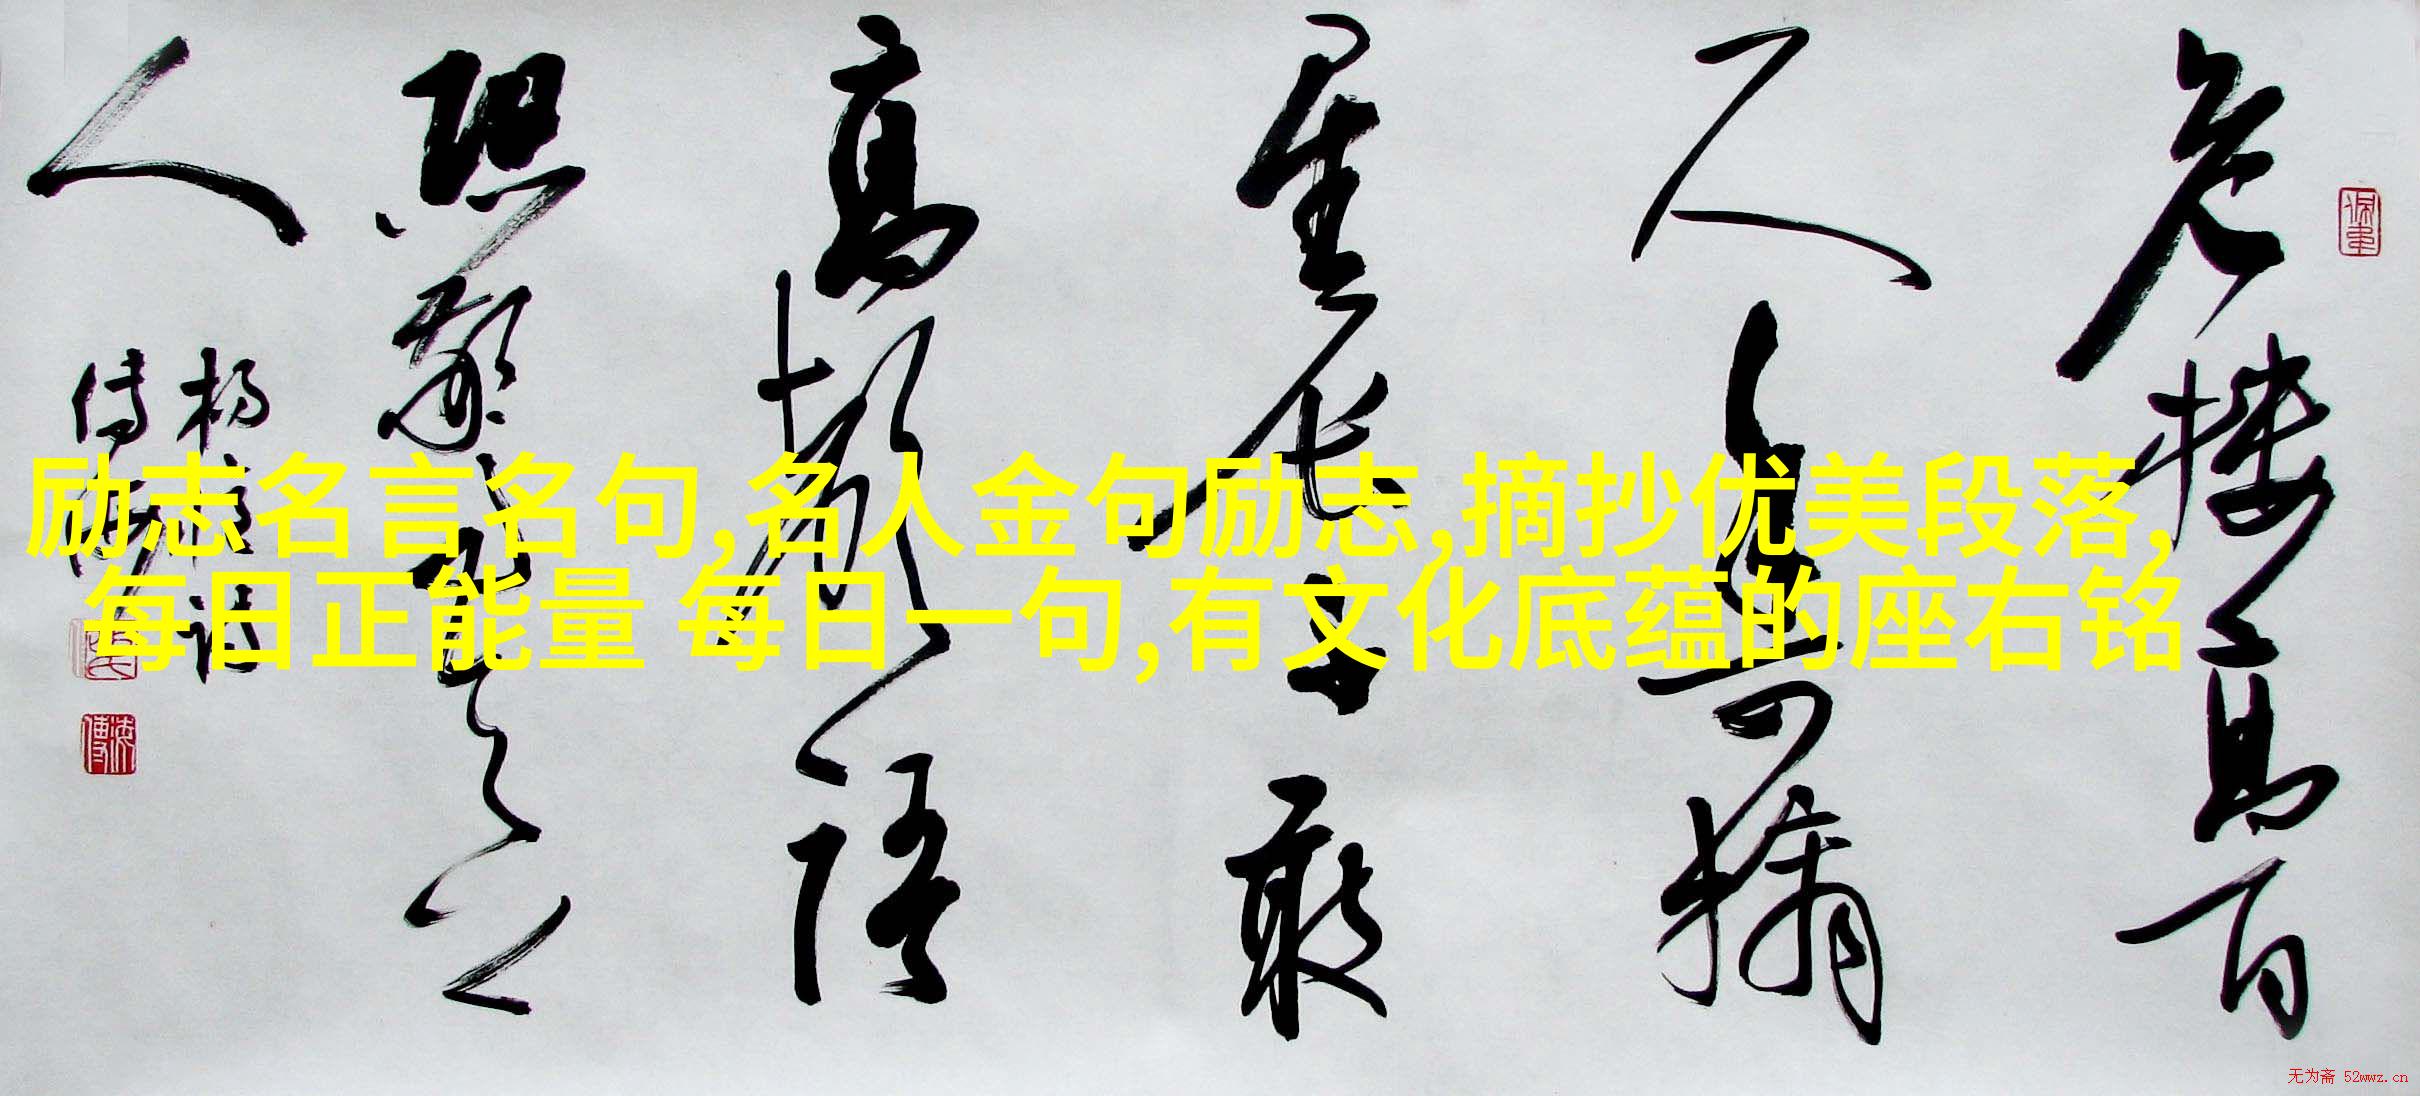 危樓高百
尺手可摘
星辰不敢
高聲語
恐驚天上
人
励志名言名句,名人金句励志,摘抄优美段落,
每日正能量 每日一句,有文化底蕴的座右铭
无为斋 52wwz.cn